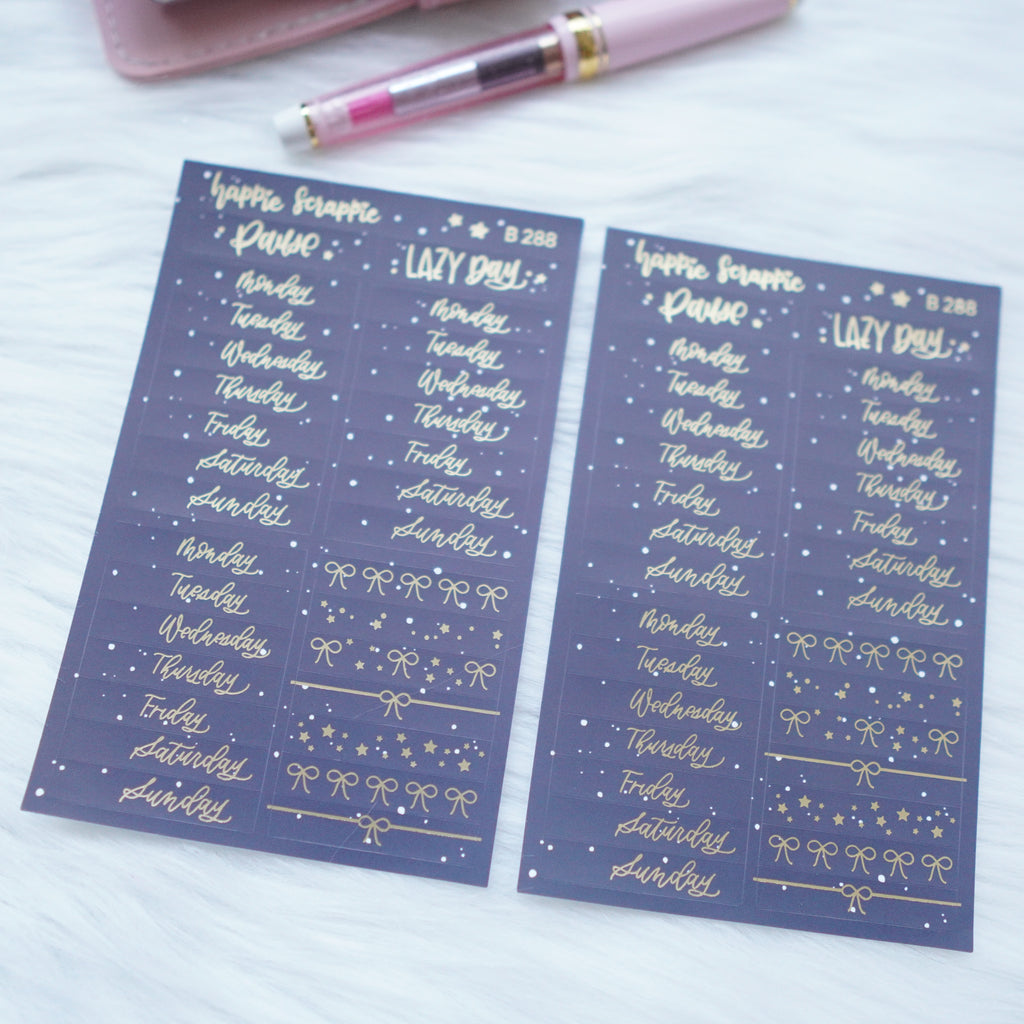 happie Scrappie
B 288
Pause
LAZY Day
Monday
Tuesday
Wednesday
Thursday
Friday
Saturday
Sunday
Monday
Tuesday
Wednesday
Thursday
Friday
Saturday
Sunday
Monday
Tuesday
Wednesday
Thursday
Friday
Saturday
Sunday
happie Scrappie
B 288
Pause
LAZY Day
Monday
Tuesday
Wednesday
Thursday
Friday
Saturday
Sunday
Monday
Tuesday
Wednesday
Thursday
Friday
Saturday
Sunday
Monday
Tuesday
Wednesday
Thursday
Friday
Saturday
Sunday